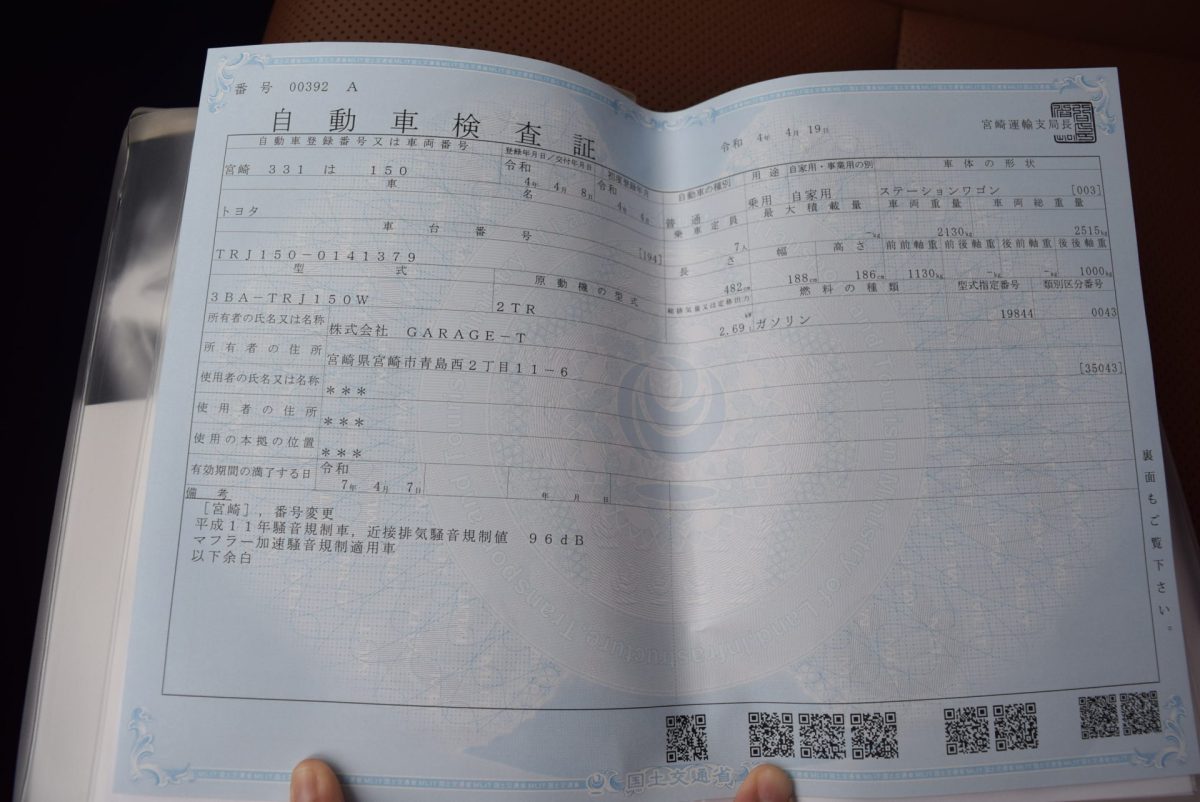 番号 00392 A
自動車検査証
令和 4年 4月 19日
宮崎運輸支局長
自動車登録番号又は車両番号 登録年月日／交付年月日 初度登録年月 自動車の種別 用途 自家用・事業用の別 車体の形状
宮崎 331 は 150 令和 4年 4月 8日 令和 4年 4月 普通 乗用 自家用 ステーションワゴン [003]
車名 乗車定員 最大積載量 車両重量 車両総重量
トヨタ [194] 7人 -kg 2130kg 2515kg
車台番号 長さ 幅 高さ 前前軸重 前後軸重 後前軸重 後後軸重
TRJ150-0141379 482cm 188cm 186cm 1130kg -kg -kg 1000kg
型式 原動機の型式 総排気量又は定格出力 燃料の種類 型式指定番号 類別区分番号
3BA-TRJ150W 2TR 2.69 kW L ガソリン 19844 0043
所有者の氏名又は名称 株式会社 GARAGE-T
所有者の住所 宮崎県宮崎市青島西2丁目11-6 [35043]
使用者の氏名又は名称 ＊＊＊
使用者の住所 ＊＊＊
使用の本拠の位置 ＊＊＊
有効期間の満了する日 令和 7年 4月 7日 年 月 日
備考
[宮崎]，番号変更
平成11年騒音規制車，近接排気騒音規制値 96dB
マフラー加速騒音規制適用車
以下余白
裏面もご覧下さい。
国土交通省